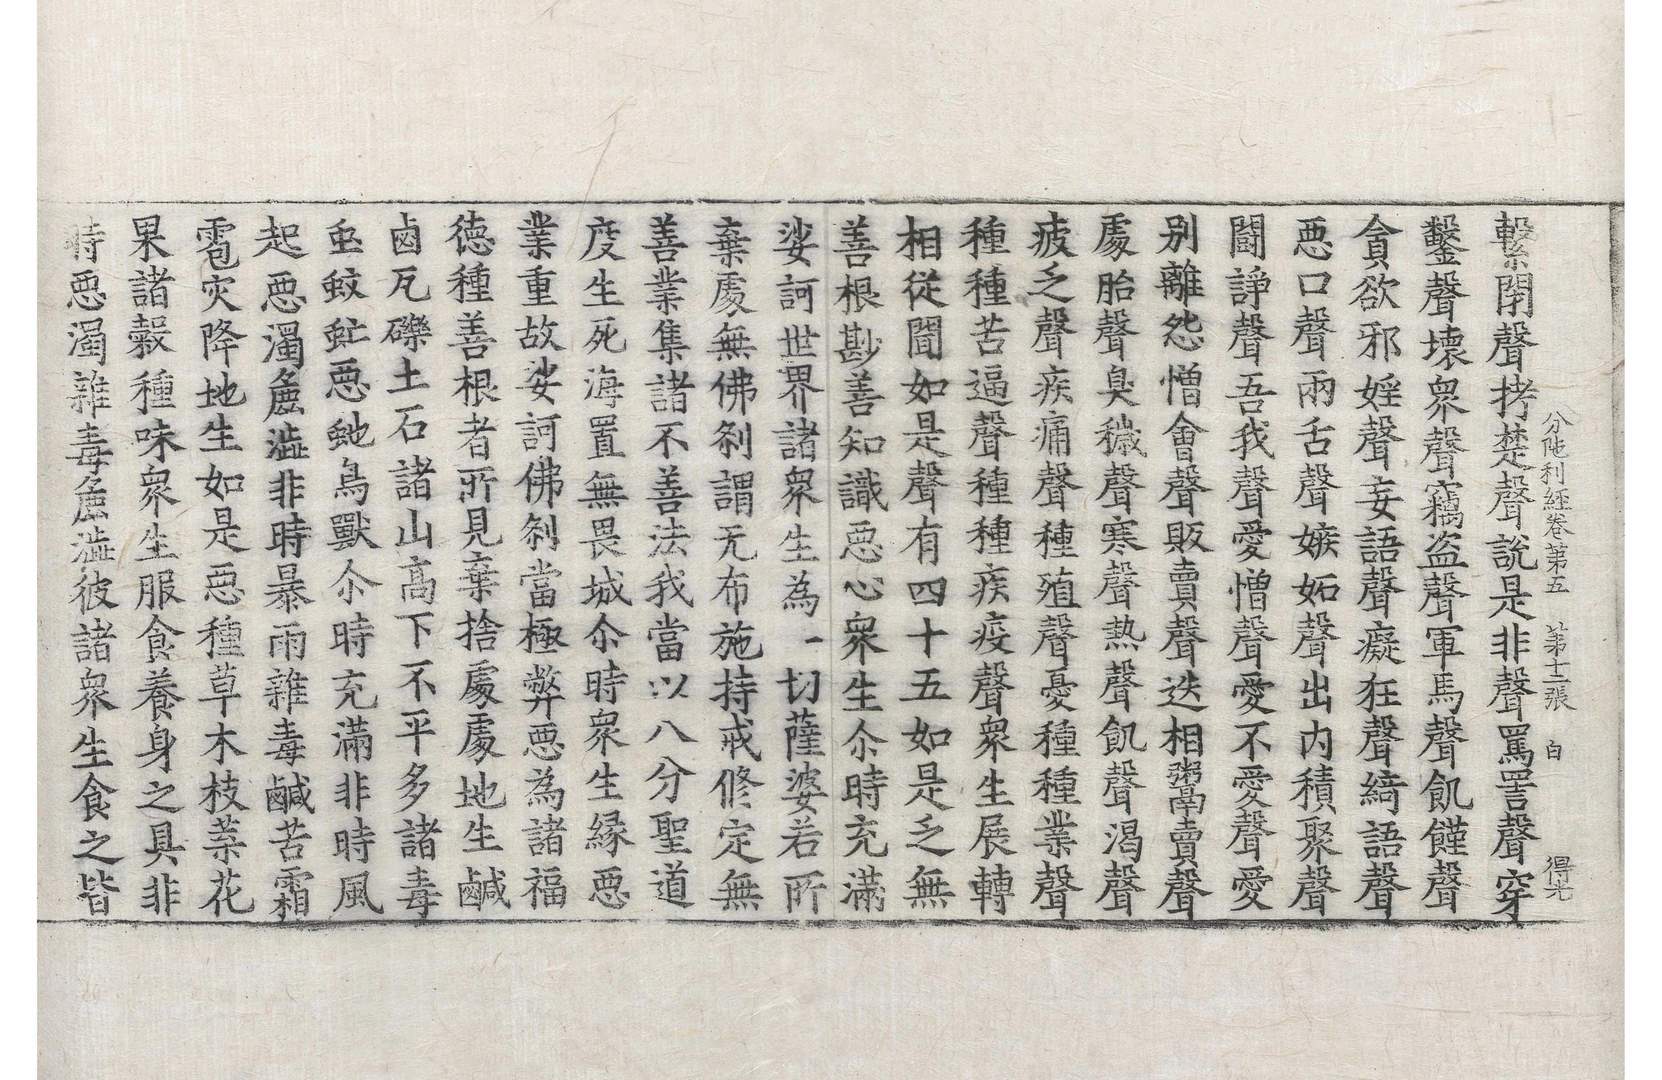 分陁利經卷第五　第十二張　白　得光
繫閉聲拷楚聲說是非聲罵詈聲穿
鑿聲壞衆聲竊盜聲軍馬聲飢饉聲
貪欲邪婬聲妄語聲癡狂聲綺語聲
惡口聲兩舌聲嫉妬聲出内積聚聲
鬪諍聲吾我聲愛憎聲愛不愛聲愛
別離怨憎會聲販賣聲迭相粥賣聲
處胎聲臭穢聲寒聲熱聲飢聲渴聲
疲乏聲疾痛聲種殖聲憂種種業聲
種種苦逼聲種種疾疫聲衆生展轉
相從聞如是聲有四十五如是乏無
善根尠善知識惡心衆生尒時充滿
娑訶世界諸衆生為一切薩婆若所
棄處無佛刹謂无布施持戒修定無
善業集諸不善法我當以八分聖道
度生死海置無畏城尒時衆生緣惡
業重故娑訶佛刹當極弊惡為諸福
德種善根者所見棄捨處處地生鹹
鹵瓦礫土石諸山高下不平多諸毒
䖟蚊虻惡虵鳥獸尒時充滿非時風
起惡濁麁澁非時暴雨雜毒鹹苦霜
雹灾降地生如是惡種草木枝葉花
果諸穀種味衆生服食養身之具非
時惡濁雜毒麁澁彼諸衆生食之皆